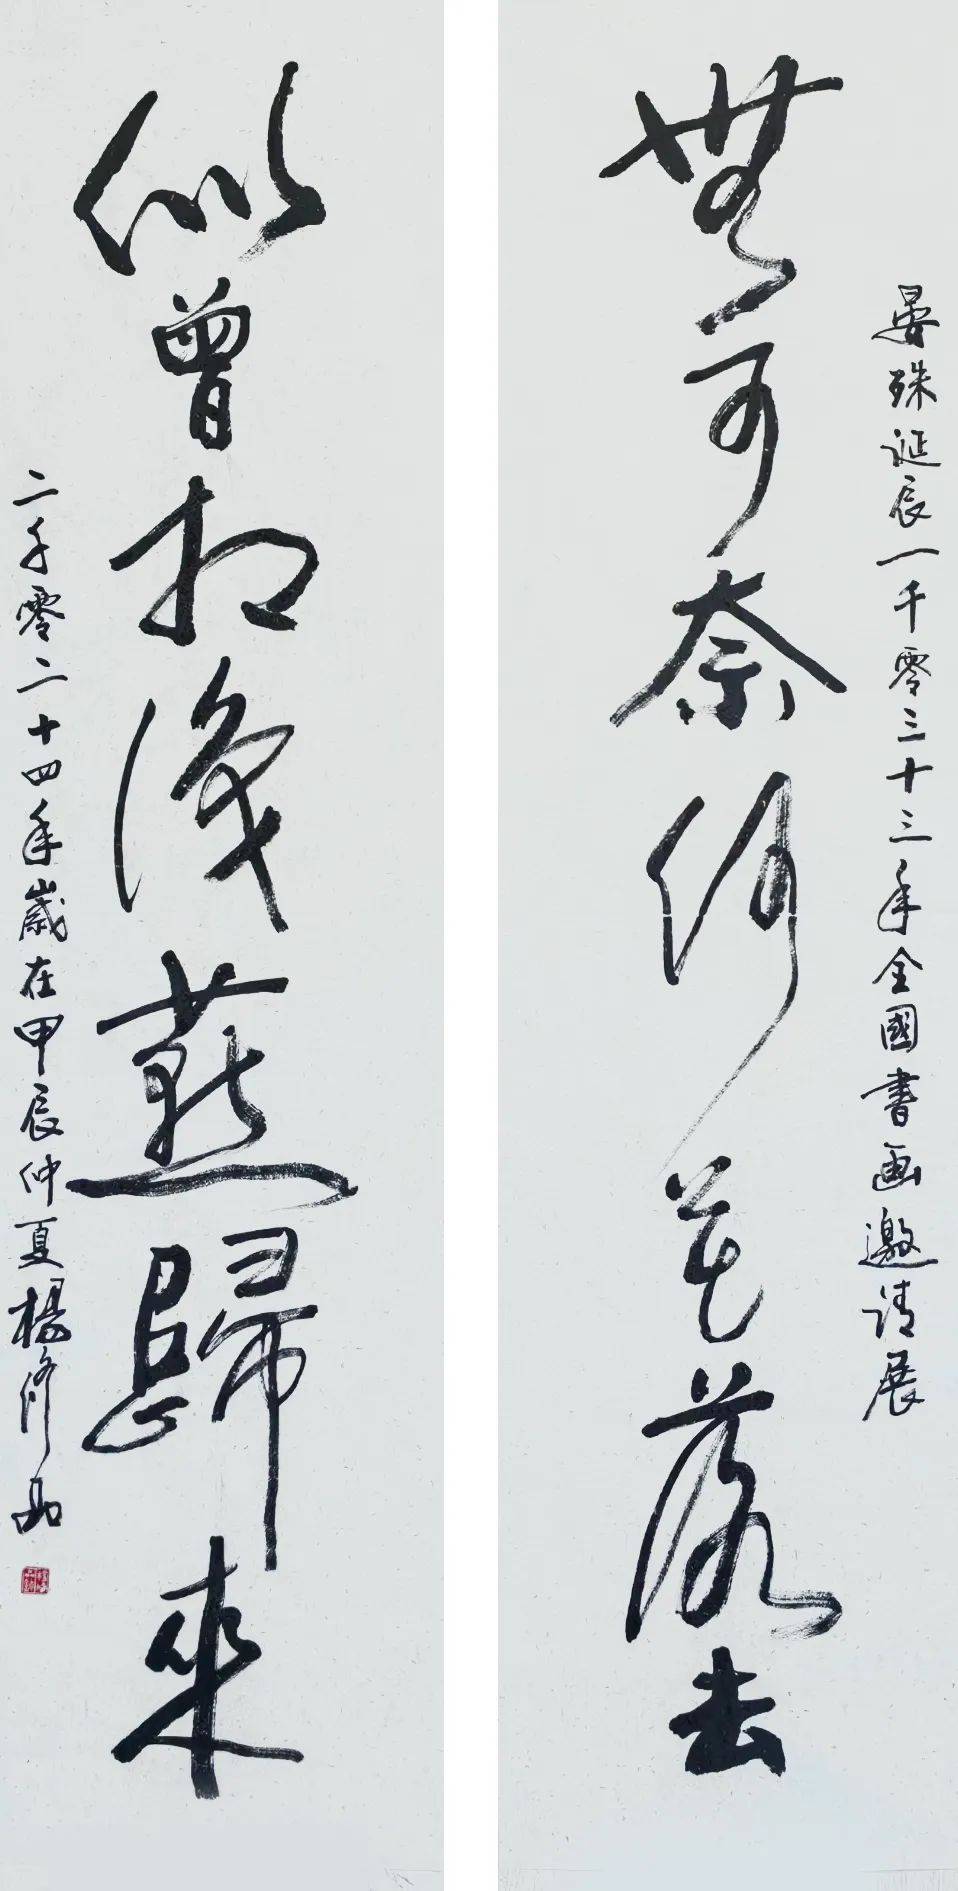 晏殊诞辰一千零三十三年全國書画邀请展
無可奈何花落去
似曾相識燕歸來
二千零二十四年歲在甲辰仲夏楊修品